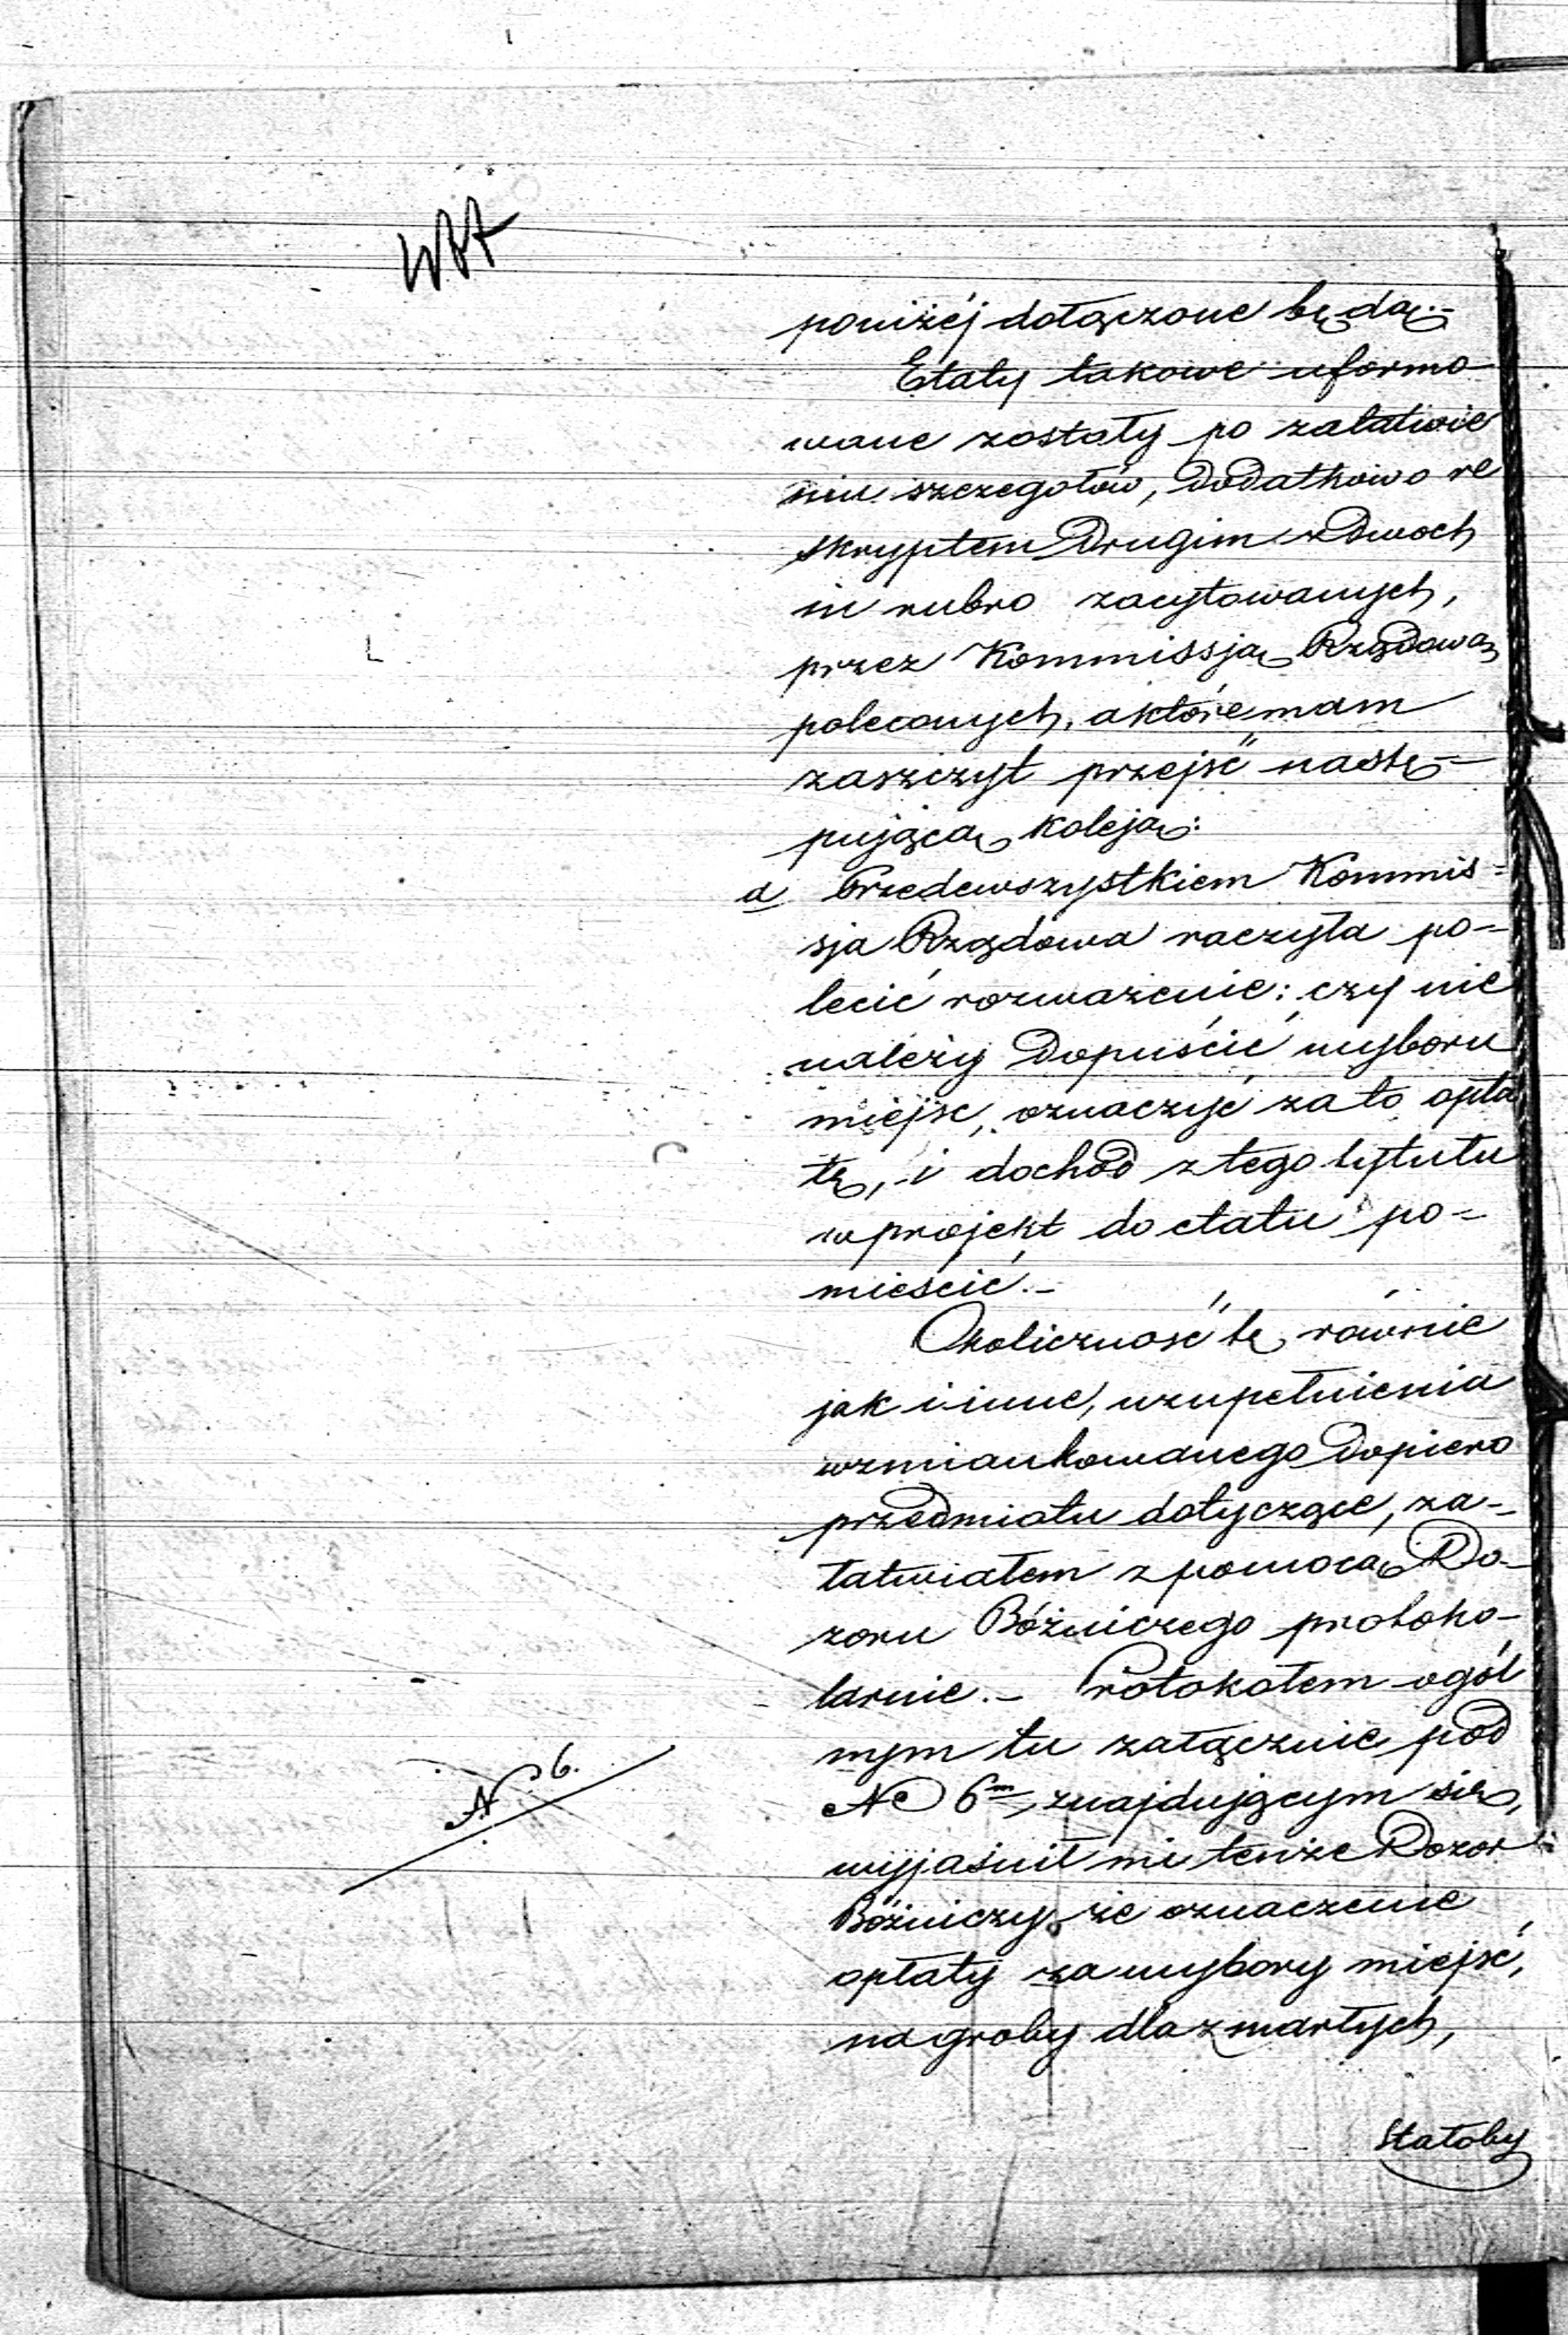 poniżéj dołączone będą.-
Etaty takowe uformo-
wane zostały po załatwie
niu szczegołów, dodatkowo re
skryptem drugim z dwoch
in rubro zacytowanych,
przez Kommissją Rządową
poleconych, a które mam
zaszczyt przejść nastę-
pującą koleją:
a Przedewszystkiem Kommis-
sja Rządowa raczyła po-
lecić rozważenie: czy nie
należy dopuścić wyboru
miejsc, oznaczyć za to opła
tę, i dochód z tego tytułu
w projekt do etatu po-
mieścić.-
Okoliczność tę, równie
jak i inne, uzupełnienia
wzmiankowanego dopiero
przedmiotu dotyczące, za-
łatwiałem z pomocą Do-
zoru Bóżniczego protoko-
larnie.- Protokołem ogól
nym tu załącznie pod
N 6m znajdującym się,
wyjaśnił mi tenże Dozor
Bóżniczy, że oznaczenie
opłaty za wybory miejsć,
na groby dla zmarłych,
N 6.
stałoby